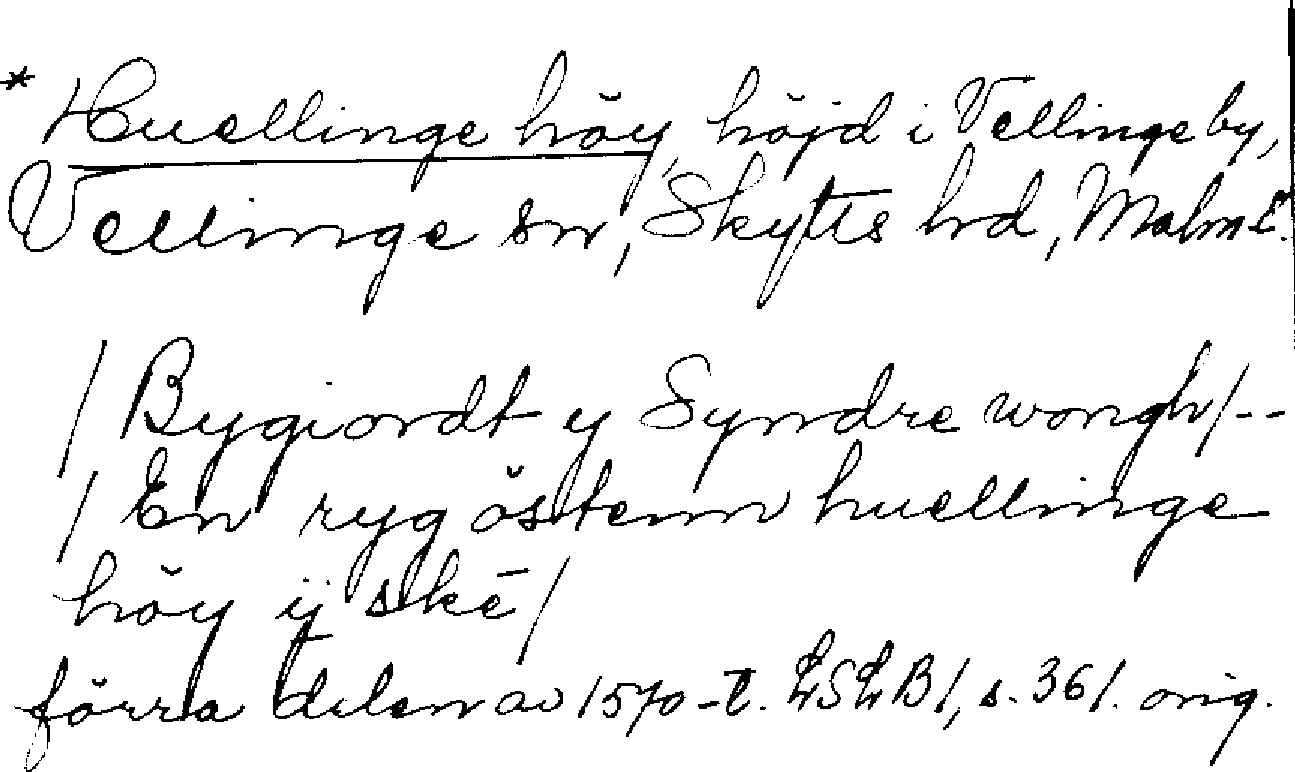 * Huellinge höy, höjd i Vellinge by,
Vellinge sn, Skytts hd, Malm L.
/ Bygiordt y Syndre wongh /--
/ En ryg östenn huellinge
höy ij skē /
förra delen av 1570-t. LSLB1, s. 361. orig.